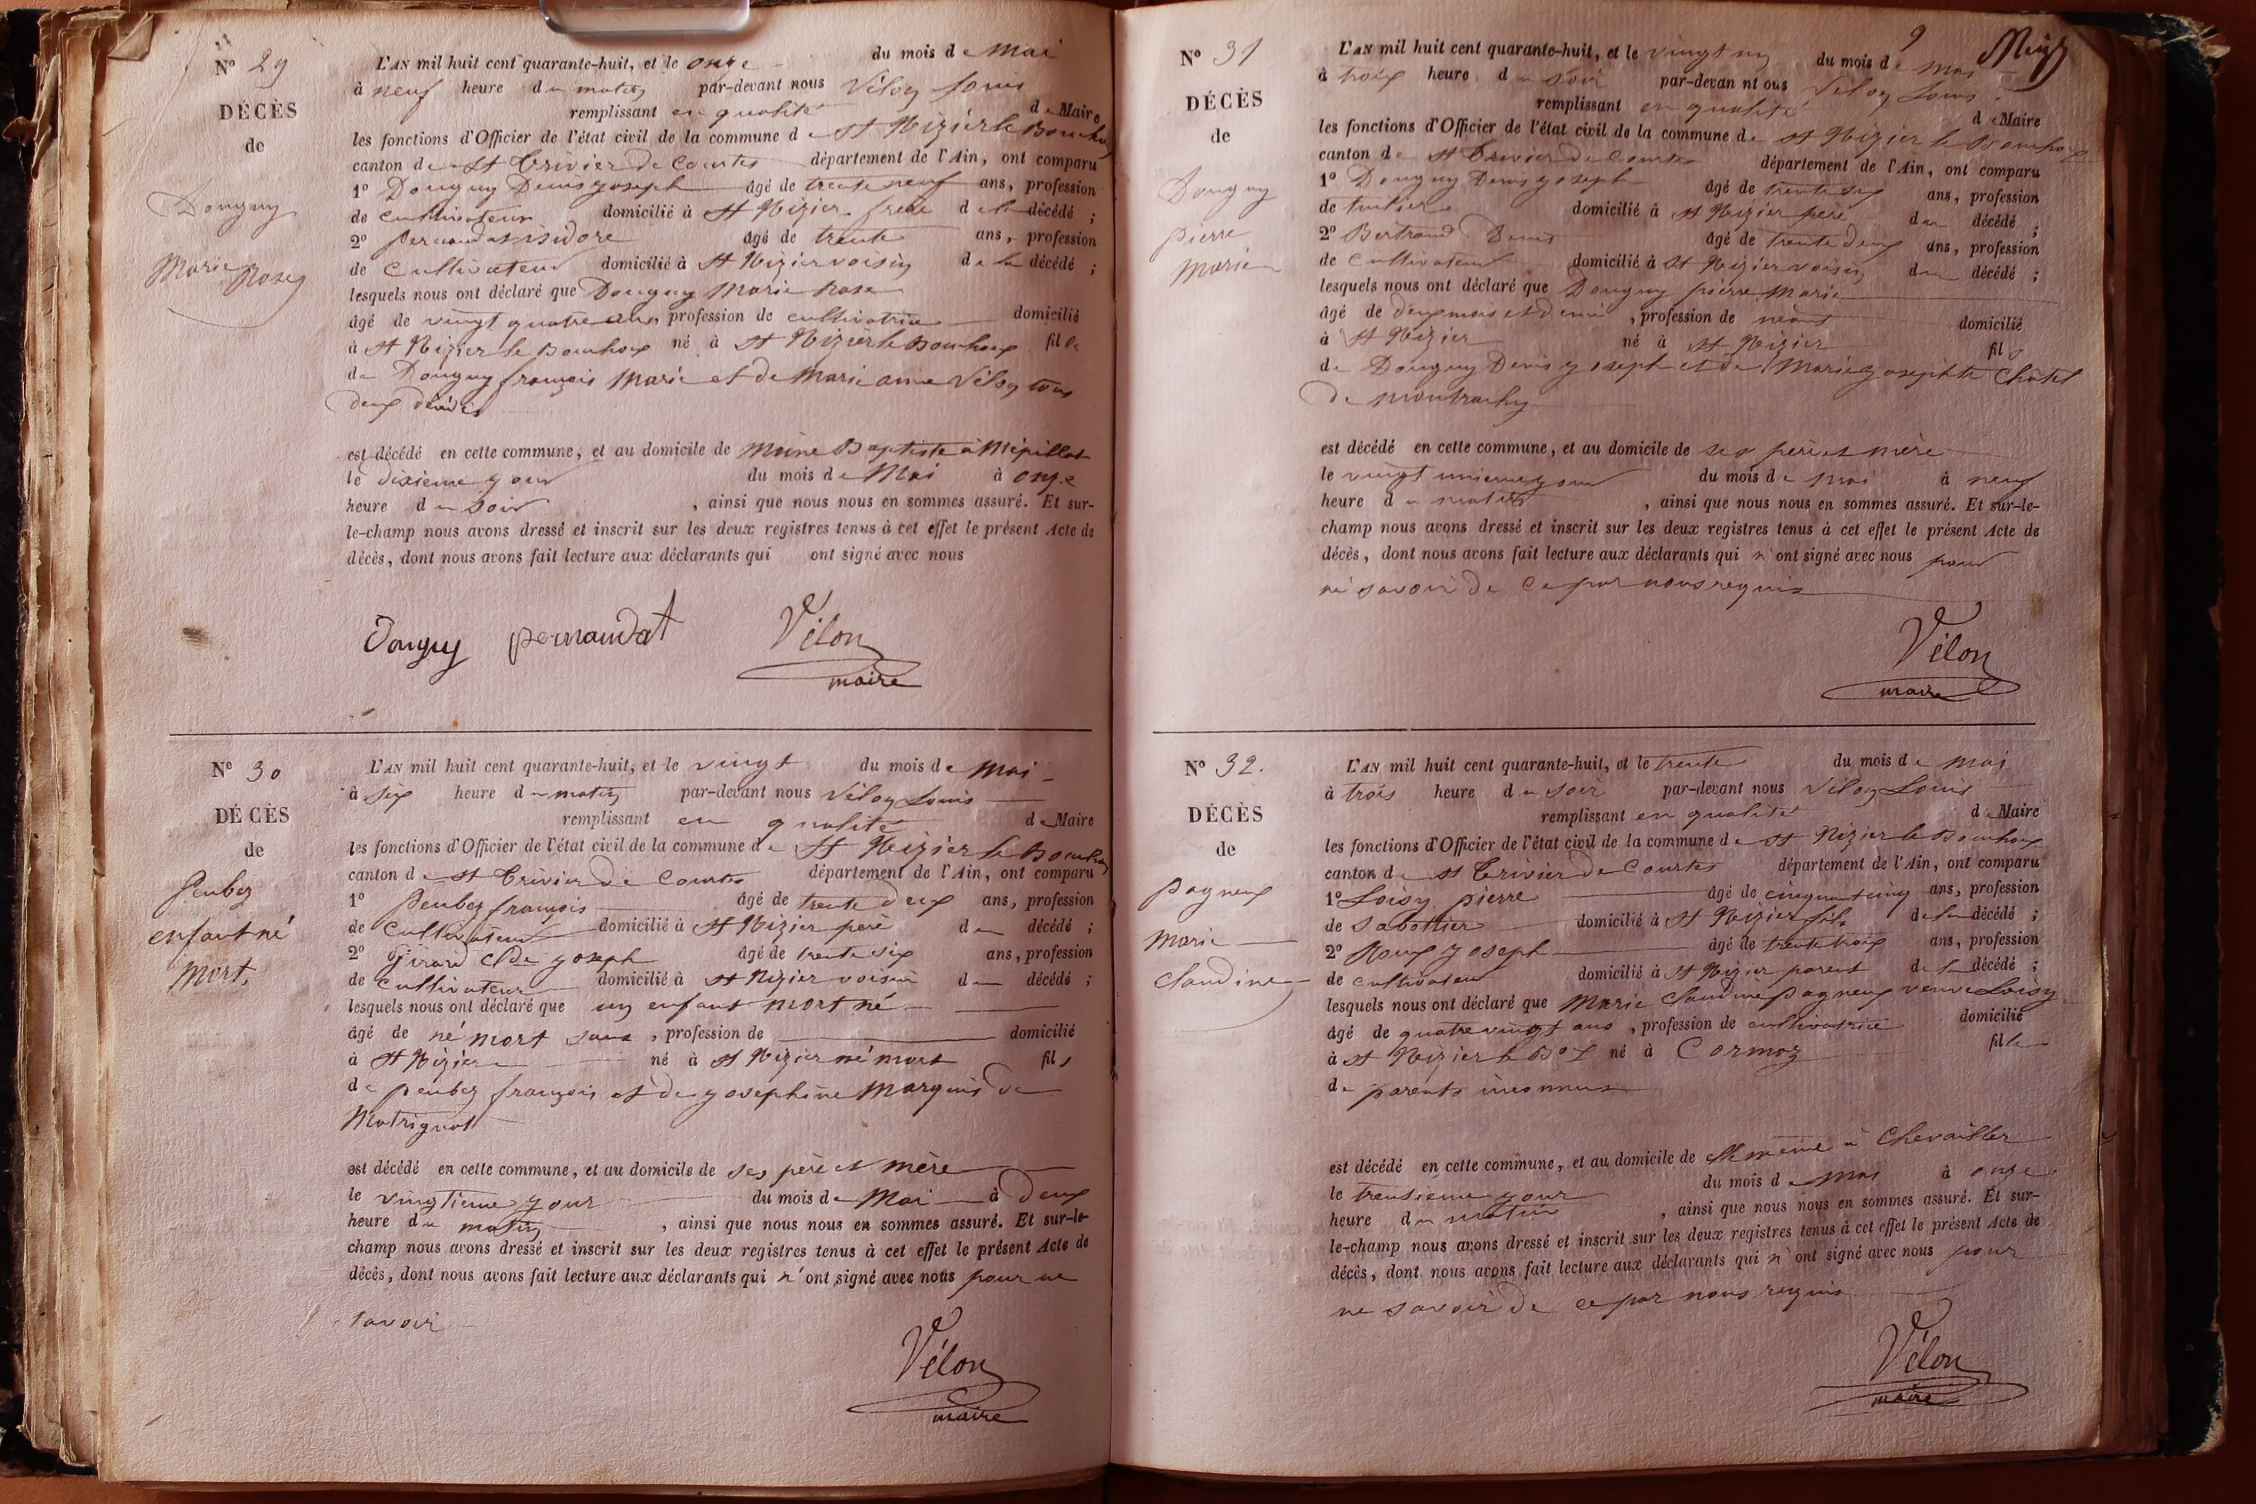 Nº 29
DÉCÈS
de
Donguy
Marie Rose
L'AN mil huit cent quarante-huit, et le onze du mois de Mai
à neuf heure du matin par-devant nous Vélon Louis
remplissant en qualité de Maire
les fonctions d'Officier de l'état civil de la commune de St Nizier le Bouchoux
canton de St Trivier de Courtes département de l'Ain, ont comparu
1º Donguy Denis Joseph âgé de trente neuf ans, profession
de cultivateur domicilié à St Nizier frère de la décédé ;
2º Pernaudat isidore âgé de trente ans, profession
de Cultivateur domicilié à St Nizier voisin de la décédé ;
lesquels nous ont déclaré que Donguy Marie Rose
âgé de vingt quatre ans, profession de cultivatrice domicilié
à St Nizier le Bouchoux né à St Nizier le Bouchoux fille
de Donguy françois Marie et de Marie anne Vélon tous
deux décédés
est décédé en cette commune, et au domicile de Baptiste à Mépillat
le dixieme jour du mois de Mai à onze
heure du soir , ainsi que nous nous en sommes assuré. Et sur-
le-champ nous avons dressé et inscrit sur les deux registres tenus à cet effet le présent Acte de
décès, dont nous avons fait lecture aux déclarants qui ont signé avec nous
Donguy Pernaudat Vélon
maire
Nº 30
DÉCÈS
de
Peubez
enfant né
Mort.
L'AN mil huit cent quarante-huit, et le vingt du mois de Mai
à six heure du matin par-devant nous Vélon Louis
remplissant en qualité de Maire
les fonctions d'Officier de l'état civil de la commune de St Nizier le Bouchoux
canton de St Trivier de Courtes département de l'Ain, ont comparu
1º Peubez françois âgé de trente deux ans, profession
de Cultivateur domicilié à St Nizier père du décédé ;
2º Girard Cde Joseph âgé de trente six ans, profession
de Cultivateur domicilié à St Nizier voisin du décédé ;
lesquels nous ont déclaré que un enfant mort né
âgé de né mort sans , profession de domicilié
à St Nizier né à St Nizier né mort fils
de Peubez françois et de Joséphine Marguis de
Matrignat
est décédé en cette commune, et au domicile de ses père et mère
le vingtieme jour du mois de Mai à deux
heure du matin , ainsi que nous nous en sommes assuré. Et sur-le-
champ nous avons dressé et inscrit sur les deux registres tenus à cet effet le présent Acte de
décès, dont nous avons fait lecture aux déclarants qui n'ont signé avec nous pour ne
savoir
Vélon
maire
9
Nº 31
DÉCÈS
de
Donguy
pierre
Marie
L'AN mil huit cent quarante-huit, et le vingt un du mois de mai
à trois heure du soir par-devan nt ous Vélon Louis
remplissant en qualité de Maire
les fonctions d'Officier de l'état civil de la commune de St Nizier le Bouchoux
canton de St Trivier de Courtes département de l'Ain, ont comparu
1º Donguy Denis Joseph âgé de trente six ans, profession
de tuilier domicilié à St Nizier père du décédé ;
2º Bertrand Denis âgé de trente deux ans, profession
de Cultivateur domicilié à St Nizier voisin du décédé ;
lesquels nous ont déclaré que Donguy pierre Marie
âgé de deux mois et demi , profession de néant domicilié
à St Nizier né à St Nizier fils
de Donguy Denis Joseph et de Marie Josephte Châtel
de Montrachy
est décédé en cette commune, et au domicile de ses père et mère
le vingt unieme jour du mois de mai à neuf
heure du matin , ainsi que nous nous en sommes assuré. Et sur-le-
champ nous avons dressé et inscrit sur les deux registres tenus à cet effet le présent Acte de
décès, dont nous avons fait lecture aux déclarants qui n'ont signé avec nous pour
ne savoir de ce par nous requis
Vélon
maire
Nº 32.
DÉCÈS
de
Pagneux
Marie
Claudine
L'AN mil huit cent quarante-huit, et le trente du mois de mai
à trois heure du soir par-devant nous Vélon Louis
remplissant en qualité de Maire
les fonctions d'Officier de l'état civil de la commune de St Nizier le Bouchoux
canton de St Trivier de Courtes département de l'Ain, ont comparu
1º Loisy pierre âgé de cinquante cinq ans, profession
de Sabottier domicilié à St Nizier fils de la décédé ;
2º Roux Joseph âgé de trente trois ans, profession
de cultivateur domicilié à St Nizier parent de la décédé ;
lesquels nous ont déclaré que Marie Claudine Pagneux veuve Loisy
âgé de quatre vingt ans , profession de cultivatrice domicilié
à St Nizier le Boux né à Cormoz fille
de parents inconnus
est décédé en cette commune, et au domicile de elle même à Chevailler
le trentieme jour du mois de mai à onze
heure du matin , ainsi que nous nous en sommes assuré. Et sur-
le-champ nous avons dressé et inscrit sur les deux registres tenus à cet effet le présent Acte de
décès, dont nous avons fait lecture aux déclarants qui n'ont signé avec nous pour
ne savoir de ce par nous requis
Vélon
maire